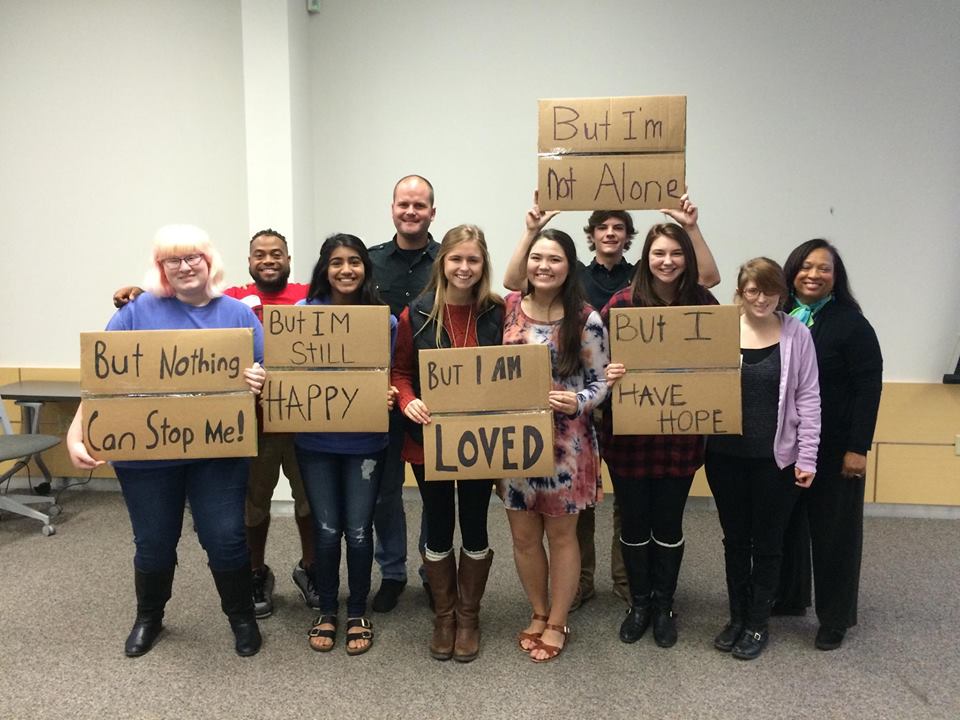 But I'm
not Alone
But Nothing
Can Stop Me!
But IM
STILL
HAPPY
BUT I AM
LOVED
BUT I
HAVE
HOPE